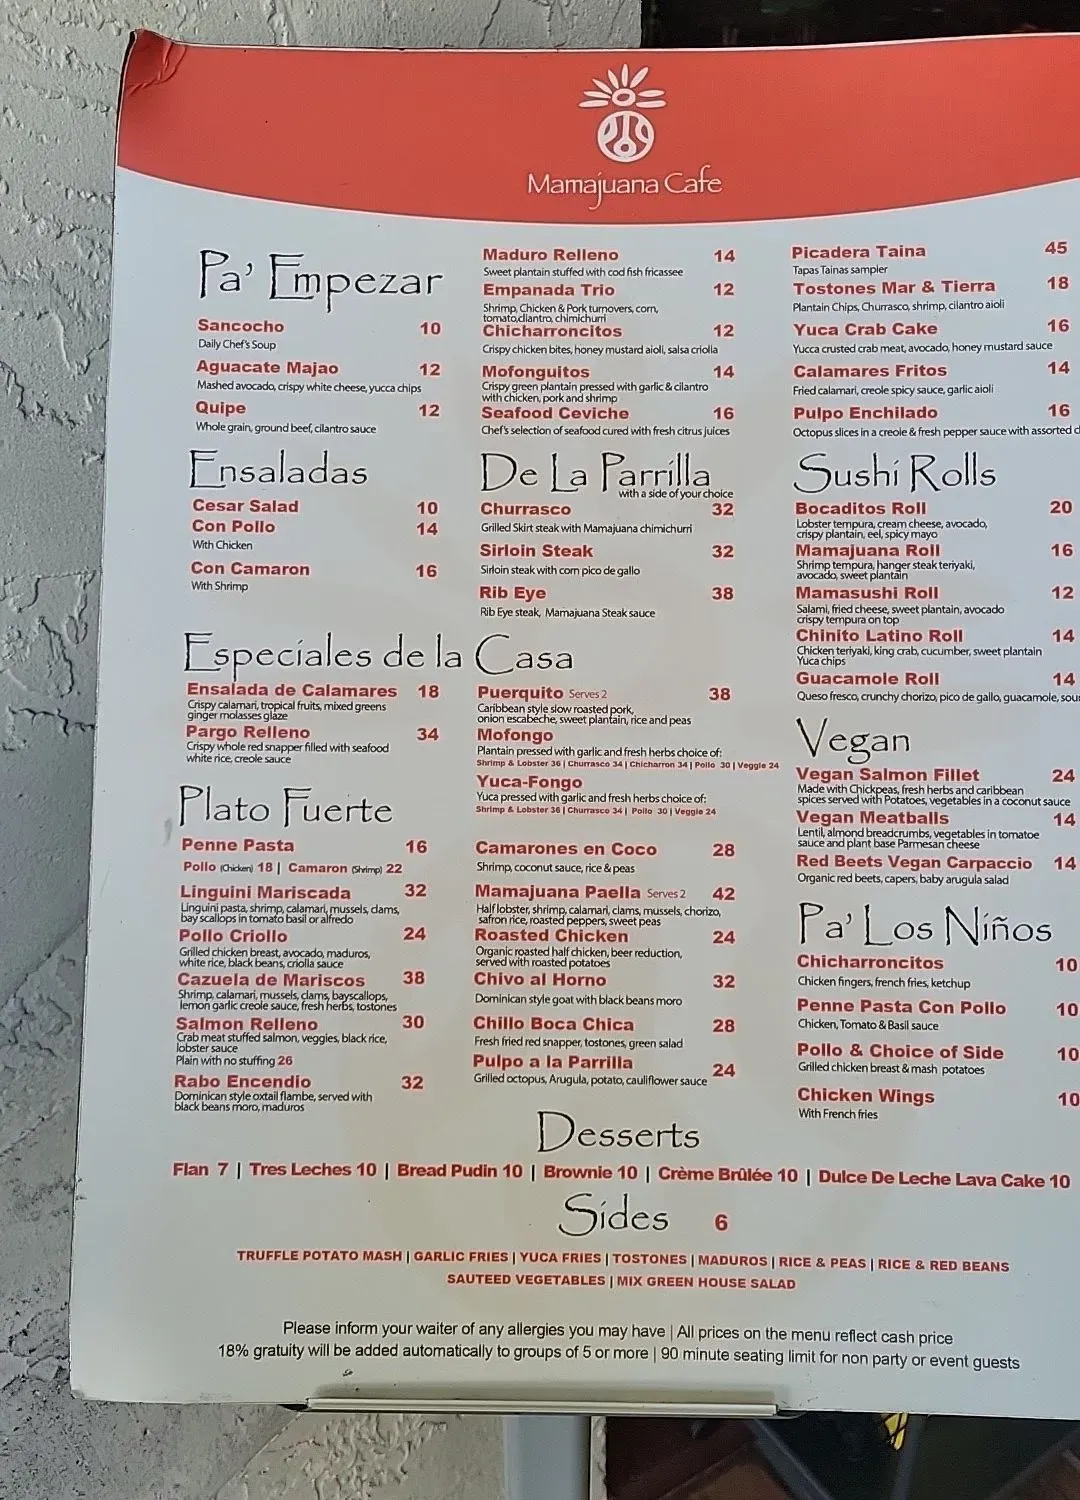 Mamajuana Cafe
Pa' Empezar
Sancocho 10
Daily Chef's Soup
Aguacate Majao 12
Mashed avocado, crispy white cheese, yucca chips
Quipe 12
Whole grain, ground beef, cilantro sauce
Maduro Relleno 14
Sweet plantain stuffed with cod fish fricassee
Empanada Trio 12
Shrimp, Chicken & Pork turnovers, corn,
tomato,cilantro, chimichurri
Chicharroncitos 12
Crispy chicken bites, honey mustard aioli, salsa criolla
Mofonguitos 14
Crispy green plantain pressed with garlic & cilantro
with chicken, pork and shrimp
Seafood Ceviche 16
Chef's selection of seafood cured with fresh citrus juices
Picadera Taina 45
Tapas Tainas sampler
Tostones Mar & Tierra 18
Plantain Chips, Churrasco, shrimp, cilantro aioli
Yuca Crab Cake 16
Yucca crusted crab meat, avocado, honey mustard sauce
Calamares Fritos 14
Fried calamari, creole spicy sauce, garlic aioli
Pulpo Enchilado 16
Octopus slices in a creole & fresh pepper sauce with assorted
Ensaladas
Cesar Salad 10
Con Pollo 14
With Chicken
Con Camaron 16
With Shrimp
De La Parrilla
with a side of your choice
Churrasco 32
Grilled Skirt steak with Mamajuana chimichurri
Sirloin Steak 32
Sirloin steak with corn pico de gallo
Rib Eye 38
Rib Eye steak, Mamajuana Steak sauce
Sushi Rolls
Bocaditos Roll 20
Lobster tempura, cream cheese, avocado,
crispy plantain, eel, spicy mayo
Mamajuana Roll 16
Shrimp tempura, hanger steak teriyaki,
avocado, sweet plantain
Mamasushi Roll 12
Salami, fried cheese, sweet plantain, avocado
crispy tempura on top
Chinito Latino Roll 14
Chicken teriyaki, king crab, cucumber, sweet plantain
Yuca chips
Guacamole Roll 14
Queso fresco, crunchy chorizo, pico de gallo, guacamole,
Especiales de la Casa
Ensalada de Calamares 18
Crispy calamari, tropical fruits, mixed greens
ginger molasses glaze
Pargo Relleno 34
Crispy whole red snapper filled with seafood
white rice, creole sauce
Puerquito Serves 2 38
Caribbean style slow roasted pork,
onion escabeche, sweet plantain, rice and peas
Mofongo
Plantain pressed with garlic and fresh herbs choice of:
Shrimp & Lobster 36 | Churrasco 34 | Chicharron 34 | Pollo 30 | Veggie 24
Yuca-Fongo
Yuca pressed with garlic and fresh herbs choice of:
Shrimp & Lobster 36 | Churrasco 34 | Pollo 30 | Veggie 24
Vegan
Vegan Salmon Fillet 24
Made with Chickpeas, fresh herbs and caribbean
spices served with Potatoes, vegetables in a coconut sauce
Vegan Meatballs 14
Lentil, almond breadcrumbs, vegetables in tomatoe
sauce and plant base Parmesan cheese
Red Beets Vegan Carpaccio 14
Organic red beets, capers, baby arugula salad
Plato Fuerte
Penne Pasta 16
Pollo (Chicken) 18 | Camaron (Shrimp) 22
Linguini Mariscada 32
Linguini pasta, shrimp, calamari, mussels, clams,
bay scallops in tomato basil or alfredo
Pollo Criollo 24
Grilled chicken breast, avocado, maduros,
white rice, black beans, criolla sauce
Cazuela de Mariscos 38
Shrimp, calamari, mussels, clams, bayscallops,
lemon garlic creole sauce, fresh herbs, tostones
Salmon Relleno 30
Crab meat stuffed salmon, veggies, black rice,
lobster sauce
Plain with no stuffing 26
Rabo Encendio 32
Dominican style oxtail flambe, served with
black beans moro, maduros
Camarones en Coco 28
Shrimp, coconut sauce, rice & peas
Mamajuana Paella Serves 2 42
Half lobster, shrimp, calamari, clams, mussels, chorizo,
safron rice, roasted peppers, sweet peas
Roasted Chicken 24
Organic roasted half chicken, beer reduction,
served with roasted potatoes
Chivo al Horno 32
Dominican style goat with black beans moro
Chillo Boca Chica 28
Fresh fried red snapper, tostones, green salad
Pulpo a la Parrilla 24
Grilled octopus, Arugula, potato, cauliflower sauce
Pa' Los Niños
Chicharroncitos 10
Chicken fingers, french fries, ketchup
Penne Pasta Con Pollo 10
Chicken, Tomato & Basil sauce
Pollo & Choice of Side 10
Grilled chicken breast & mash potatoes
Chicken Wings 10
With French fries
Desserts
Flan 7 | Tres Leches 10 | Bread Pudin 10 | Brownie 10 | Crème Brûlée 10 | Dulce De Leche Lava Cake 10
Sides 6
TRUFFLE POTATO MASH | GARLIC FRIES | YUCA FRIES | TOSTONES | MADUROS | RICE & PEAS | RICE & RED BEANS
SAUTEED VEGETABLES | MIX GREEN HOUSE SALAD
Please inform your waiter of any allergies you may have | All prices on the menu reflect cash price
18% gratuity will be added automatically to groups of 5 or more | 90 minute seating limit for non party or event guests